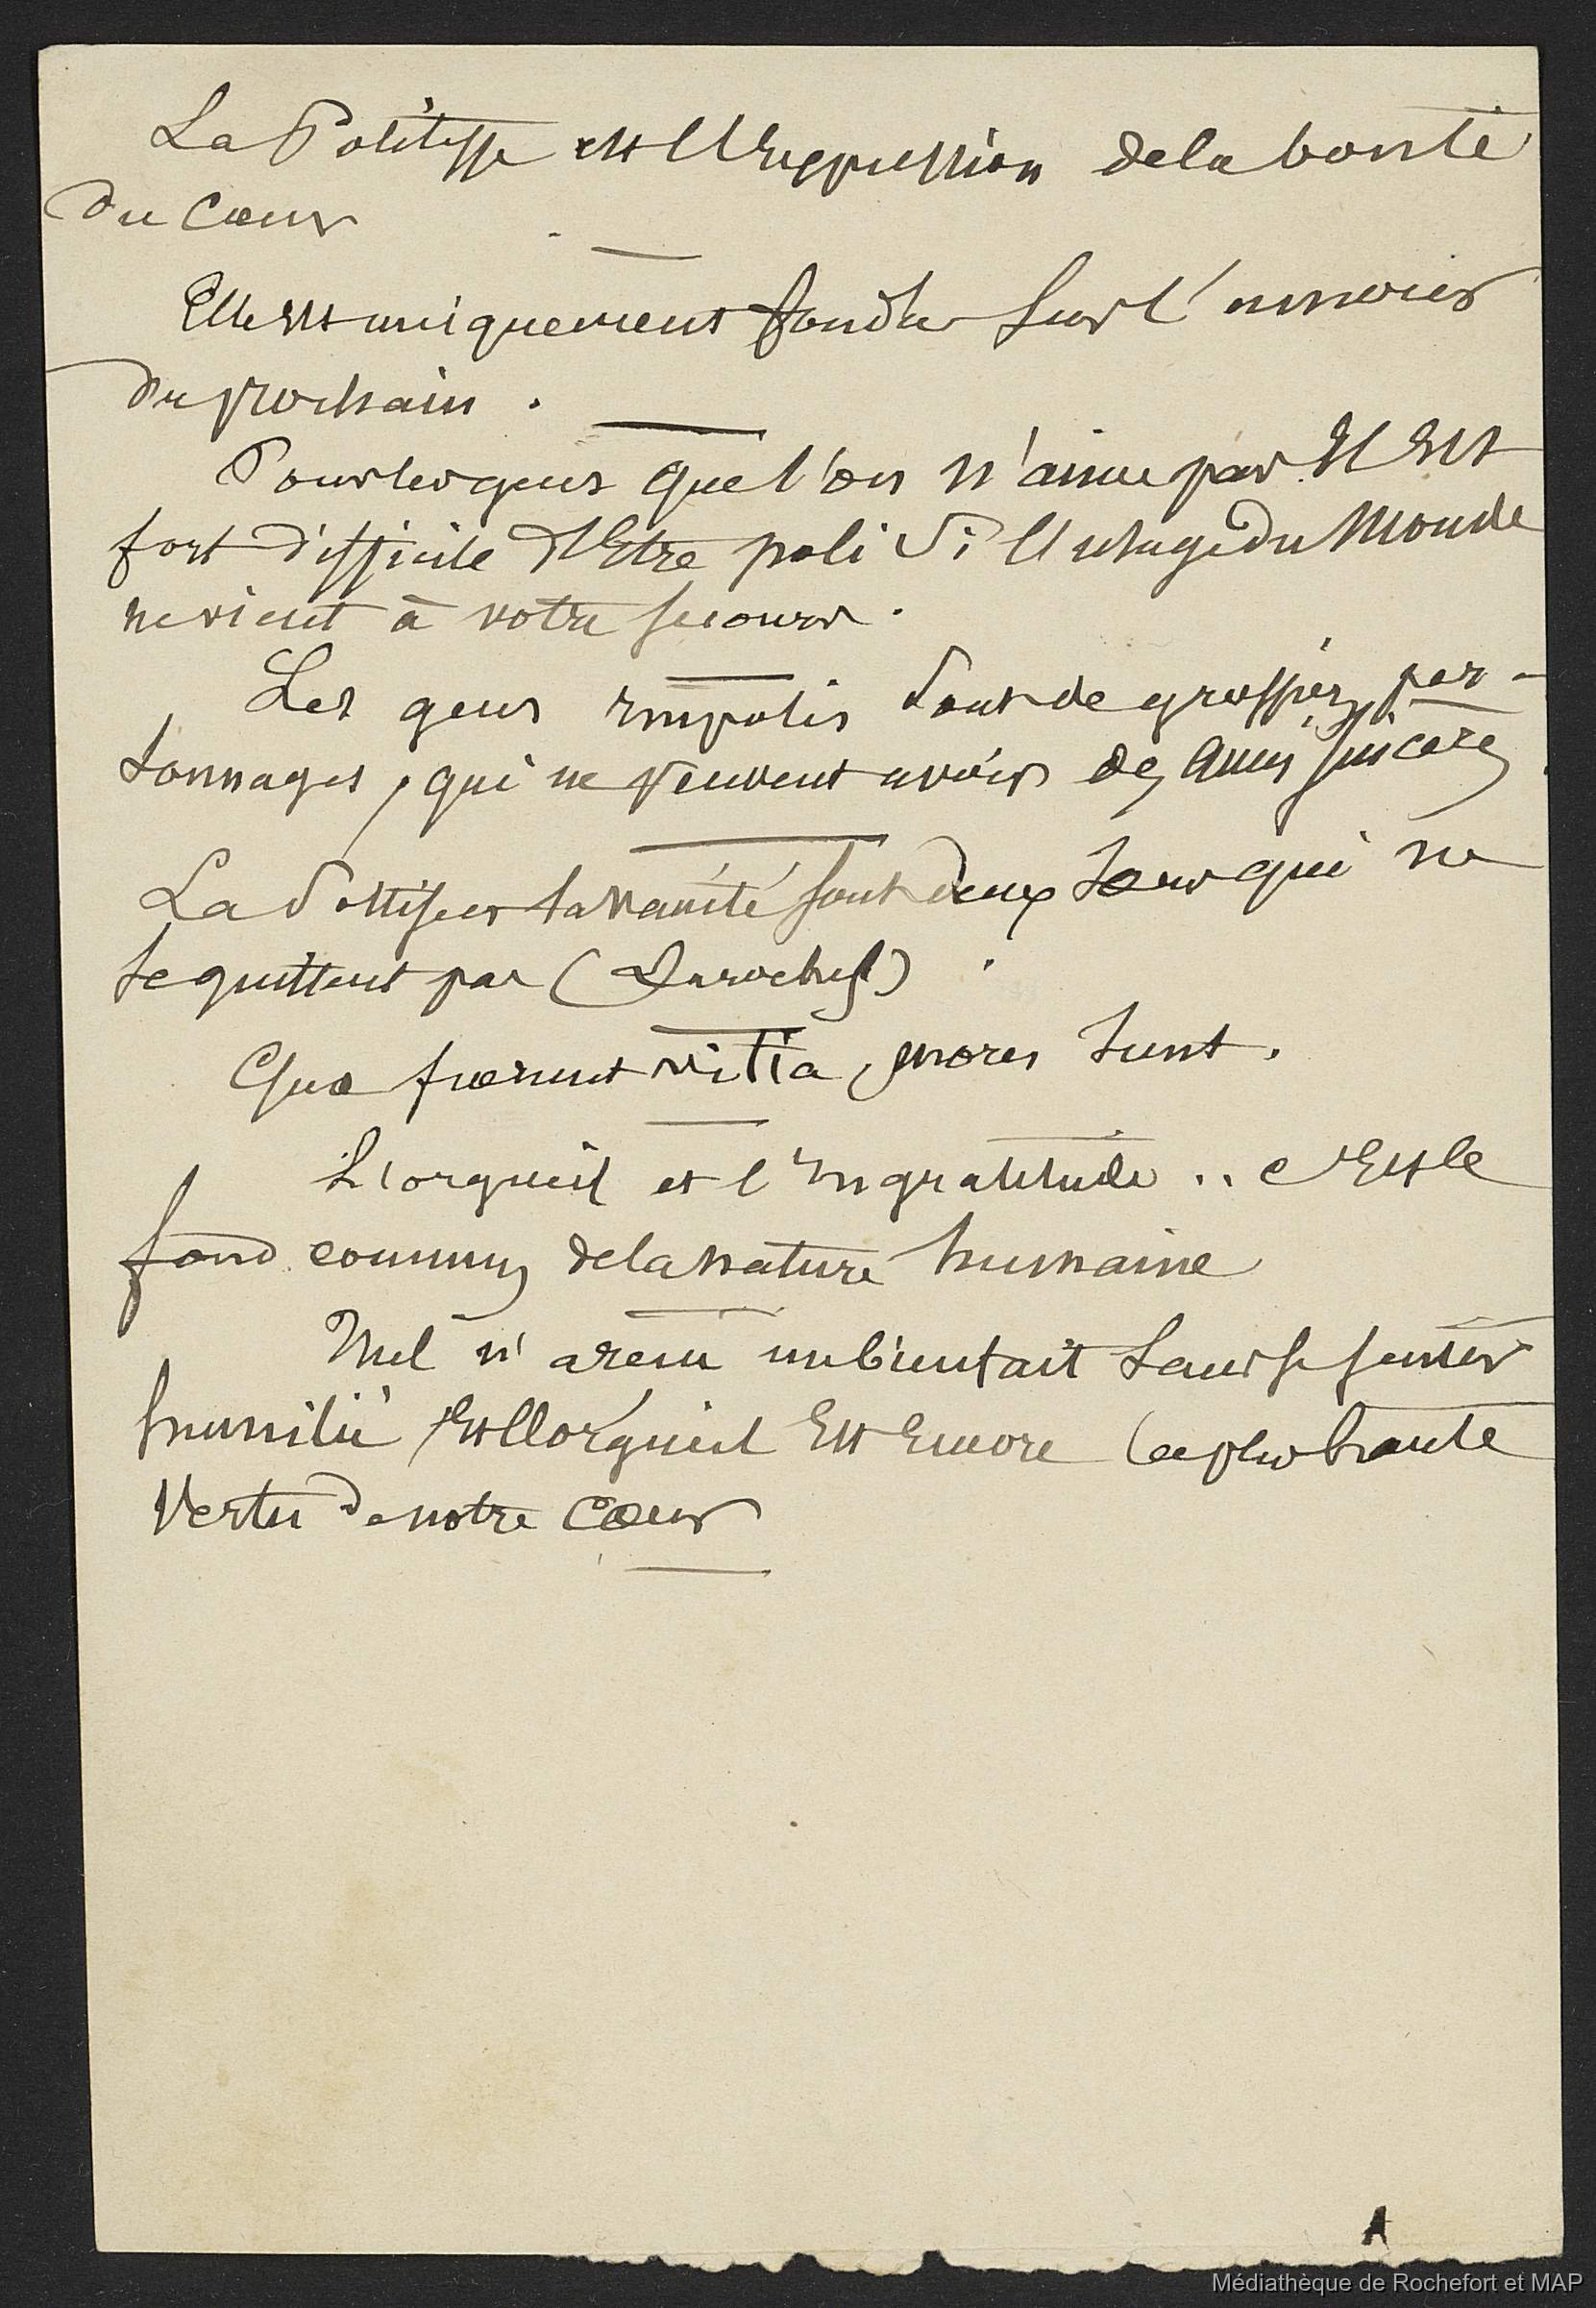 La Politesse est l'Expression de la bonté
du Cœur
Elle est uniquement fondée sur l'amour
du prochain.
Pour les gens que l'on n'aime pas Il Est
fort difficile d'Etre poli Si l'usage du Monde
ne vient à votre secours.
Les gens impolis sont de grossiers per-
sonnages, qui ne peuvent avoir des amis sincères
La Sottise et la vanité sont deux sœurs qui ne
se quittent pas (Larochef)
Quæ fuerunt vitia, mores sunt.
L'orgueil et l'ingratitude .. c'Est le
fond commun de la nature humaine
Nul n'a reçu un bienfait sans se sentir
humilié Et l'orgueil Est Encore la plus haute
Vertu de notre Cœur
A
Médiathèque de Rochefort et MAP